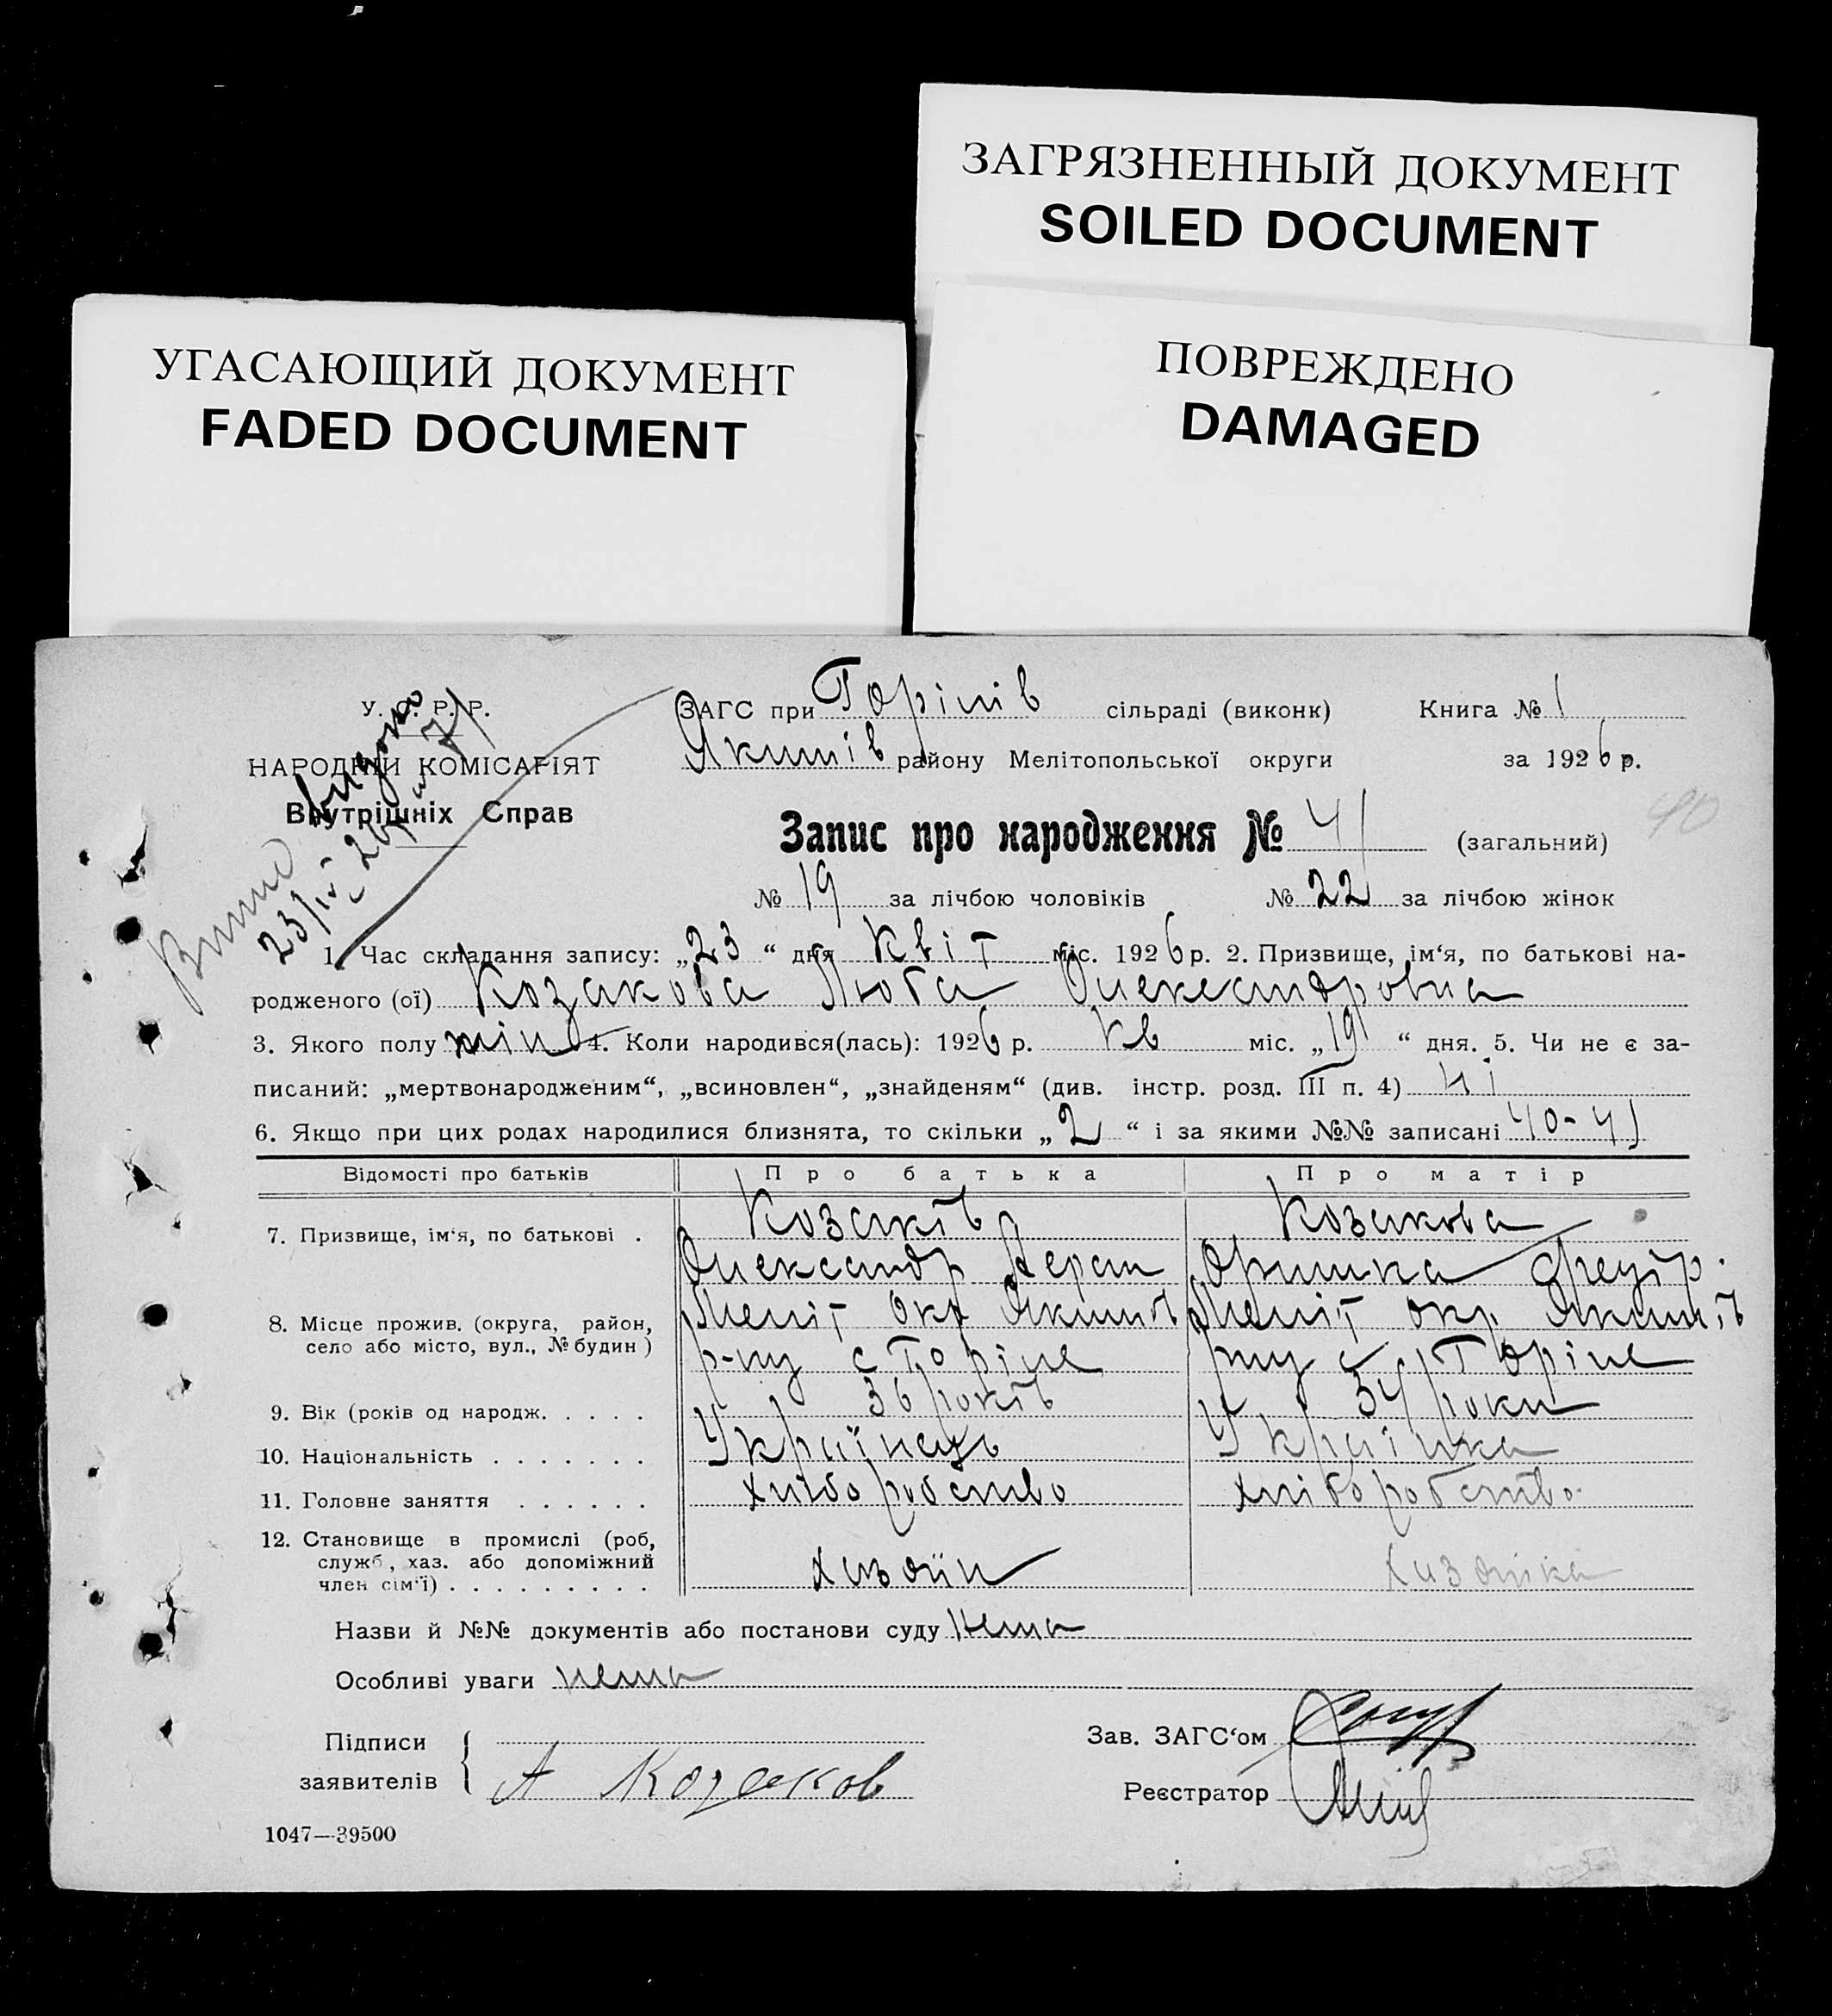 ЗАГРЯЗНЕННЫЙ ДОКУМЕНТ
SOILED DOCUMENT
УГАСАЮЩИЙ ДОКУМЕНТ
FADED DOCUMENT
ПОВРЕЖДЕНО
DAMAGED
У. С. Р. Р.
НАРОДНІЙ КОМІСАРІЯТ
Внутрішніх Справ
видано
23/IV 26
ЗАГС при Горілів сільраді (виконк) Книга № 1
Якимів району Мелітопольської округи за 1926 р.
Запис про народження № 41 (загальний)
40
№ 19 за лічбою чоловіків № 22 за лічбою жінок
1. Час складання запису: „23“ дня Квіт міс. 1926 р. 2. Призвище, ім‘я, по батькові на-
родженого (ої) Козакова Люба Олександровна
3. Якого полу жін 4. Коли народився(лась): 1926 р. Кв міс. „19“ дня. 5. Чи не є за-
писаний: „мертвонародженим“, „всиновлен“, „знайденям“ (див. інстр. розд. III п. 4) ні
6. Якщо при цих родах народилися близнята, то скільки „2“ і за якими №№ записані 40-41
Відомості про батьків Про батька Про матір
7. Призвище, ім‘я, по батькові . Козаків Козакова
Олександр Герап Оришка Федір.
8. Місце прожив. (округа, район, село або місто, вул., № будин) Меліт окр Якимів Меліт окр Якимів
р-ну с Горіле рну с Горіле
9. Вік (років од народж. . . . . 36 років 34 роки
10. Національність . . . . . . . Українець Українка
11. Головне заняття . . . . . . хліборобство хліборобство.
12. Становище в промислі (роб, служб, хаз. або допоміжний член сім‘ї) . . . . . . . . . Хазяїн Хазяйка
Назви й №№ документів або постанови суду Нема
Особливі уваги нема
Підписи заявителів А Козаков
Зав. ЗАГС‘ом
Реєстратор
1047—39500